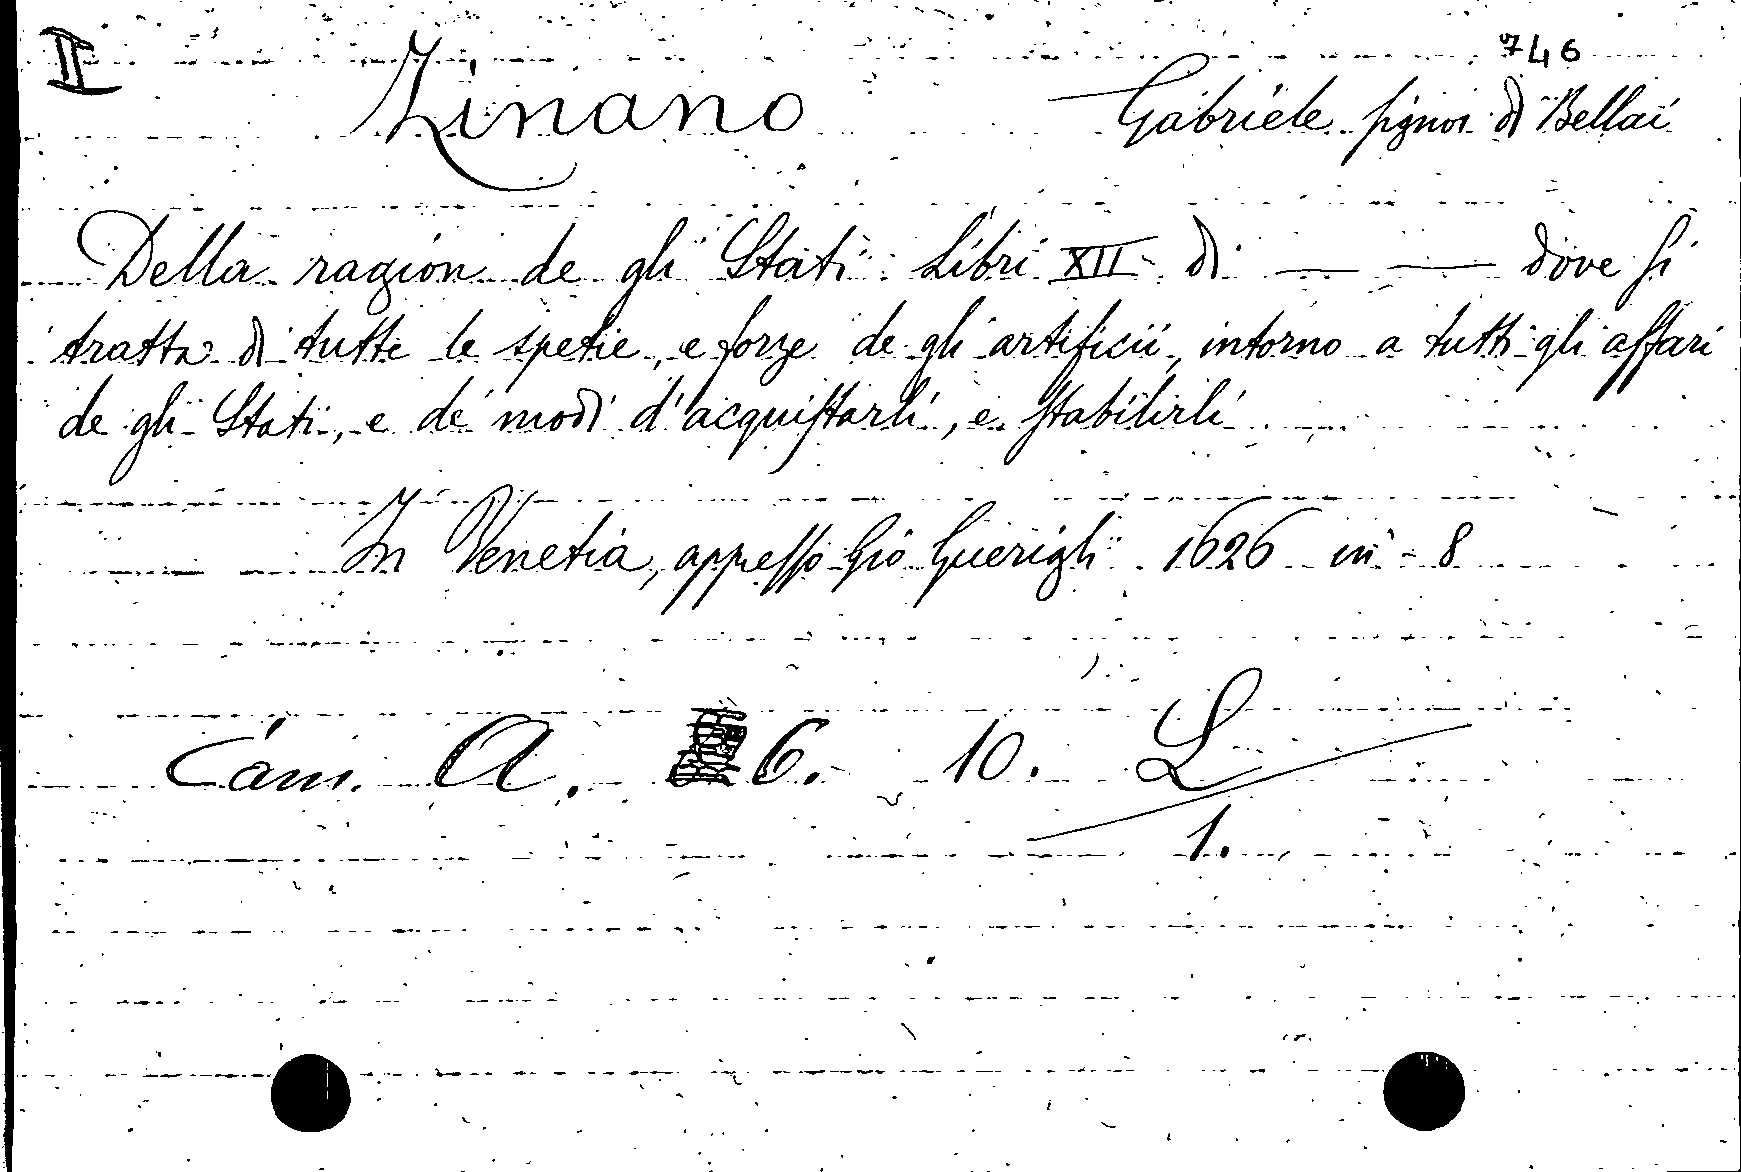 II
746
Zinano Gabriele signor di Bellai
Della ragion de gli Stati Libri XII di — — dove si
tratta di tutte le spetie, e forze de gli artificii, intorno a tutti gli affari
de gli Stati, e de' modi d'acquistarli, e stabilirli
In Venetia, appresso Gio Guerigli 1626 in - 8
Cam. A. 6. 10. L
1.